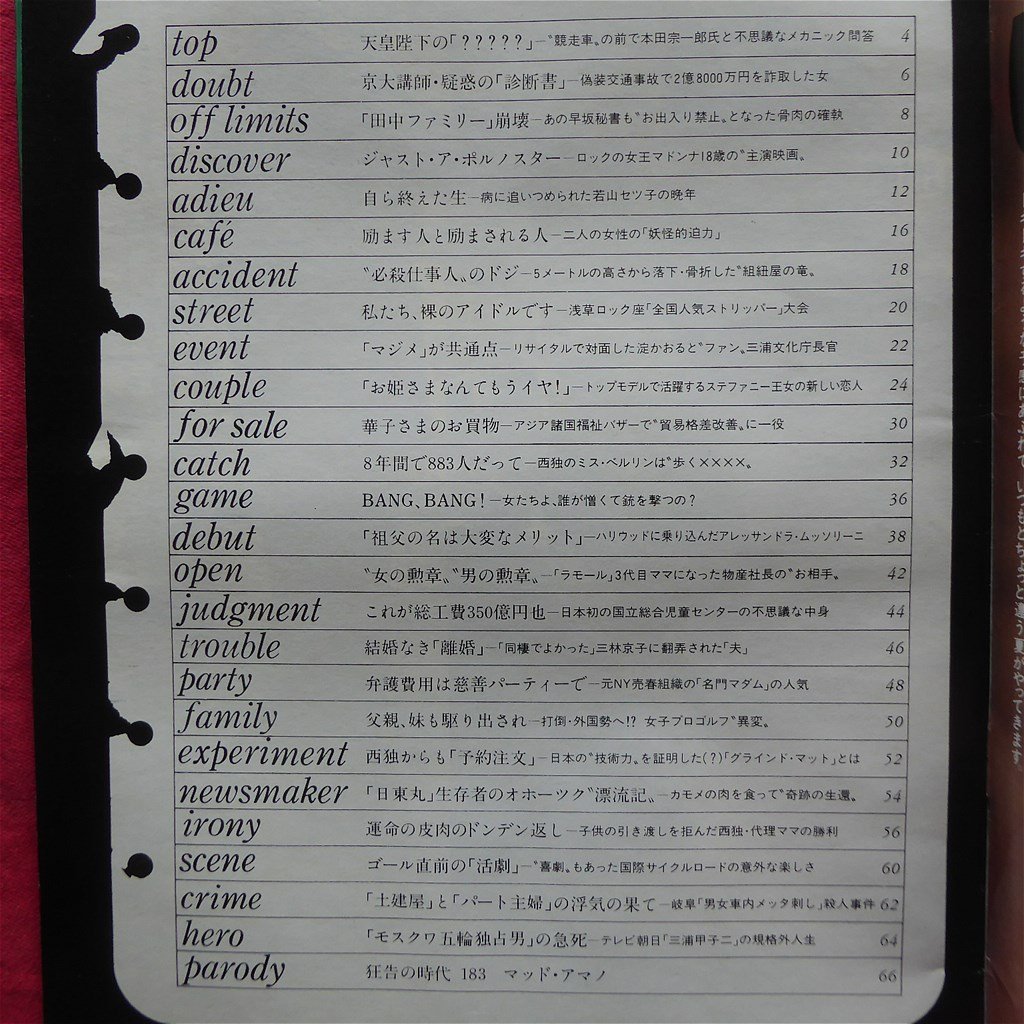 top 天皇陛下の「?????」―〝競走車〟の前で本田宗一郎氏と不思議なメカニック問答 4
doubt 京大講師・疑惑の「診断書」―偽装交通事故で2億8000万円を詐取した女 6
off limits 「田中ファミリー」崩壊―あの早坂秘書も〝お出入り禁止〟となった骨肉の確執 8
discover ジャスト・ア・ポルノスター―ロックの女王マドンナ18歳の〝主演映画〟 10
adieu 自ら終えた生―病に追いつめられた若山セツ子の晩年 12
café 励ます人と励まされる人―二人の女性の「妖怪的迫力」 16
accident 〝必殺仕事人〟のドジ―5メートルの高さから落下・骨折した〝組紐屋の竜〟 18
street 私たち、裸のアイドルです―浅草ロック座「全国人気ストリッパー」大会 20
event 「マジメ」が共通点―リサイタルで対面した淀かおると〝ファン〟三浦文化庁長官 22
couple 「お姫さまなんてもうイヤ!」―トップモデルで活躍するステファニー王女の新しい恋人 24
for sale 華子さまのお買物―アジア諸国福祉バザーで〝貿易格差改善〟に一役 30
catch 8年間で883人だって―西独のミス・ベルリンは〝歩く××××〟 32
game BANG、BANG!―女たちよ、誰が憎くて銃を撃つの? 36
debut 「祖父の名は大変なメリット」―ハリウッドに乗り込んだアレッサンドラ・ムッソリーニ 38
open 〝女の勲章〟〝男の勲章〟―「ラモール」3代目ママになった物産社長の〝お相手〟 42
judgment これが総工費350億円也―日本初の国立総合児童センターの不思議な中身 44
trouble 結婚なき「離婚」―「同棲でよかった」三林京子に翻弄された「夫」 46
party 弁護費用は慈善パーティーで―元NY売春組織の「名門マダム」の人気 48
family 父親、妹も駆り出され―打倒・外国勢へ!? 女子プロゴルフ〝異変〟 50
experiment 西独からも「予約注文」―日本の〝技術力〟を証明した(?)「グラインド・マット」とは 52
newsmaker 「日東丸」生存者のオホーツク〝漂流記〟―カモメの肉を食って〝奇跡の生還〟 54
irony 運命の皮肉のドンデン返し―子供の引き渡しを拒んだ西独・代理ママの勝利 56
scene ゴール直前の「活劇」―〝喜劇〟もあった国際サイクルロードの意外な楽しさ 60
crime 「土建屋」と「パート主婦」の浮気の果て―岐阜「男女車内メッタ刺し」殺人事件 62
hero 「モスクワ五輪独占男」の急死―テレビ朝日「三浦甲子二」の規格外人生 64
parody 狂告の時代 183 マッド・アマノ 66